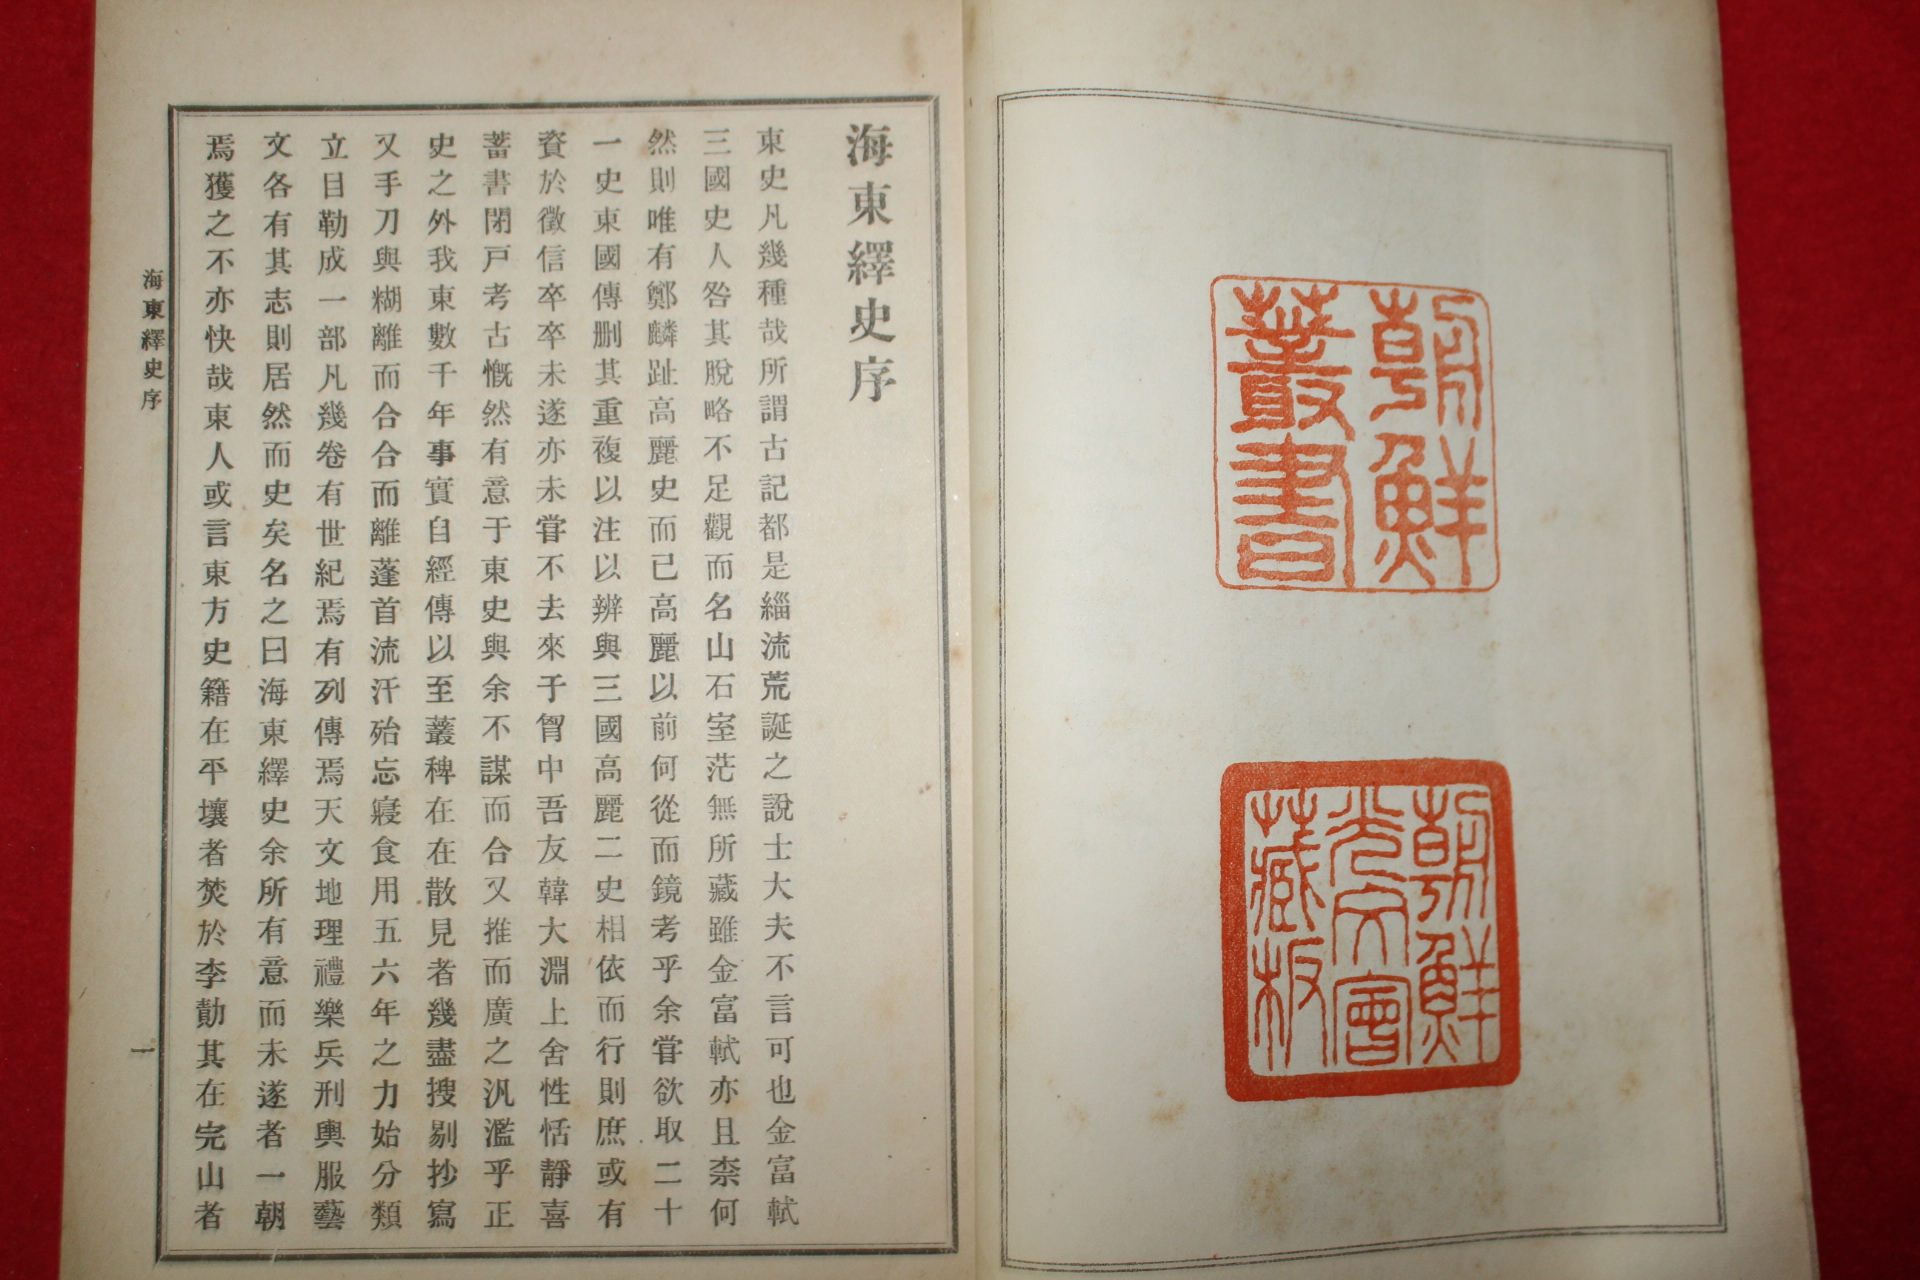 朝鮮
叢書
朝鮮
光文會
藏板
海東繹史序
東史凡幾種哉所謂古記都是緇流荒誕之說士大夫不言可也金富軾
三國史人咎其脫略不足觀而名山石室茫無所藏雖金富軾亦且柰何
然則唯有鄭麟趾高麗史而已高麗以前何從而鏡考乎余嘗欲取二十
一史東國傳刪其重複以注以辨與三國高麗二史相依而行則庶或有
資於徵信卒卒未遂亦未嘗不去來于胷中吾友韓大淵上舍性恬靜喜
蓄書閉戸考古慨然有意于東史與余不謀而合又推而廣之汎濫乎正
史之外我東數千年事實自經傳以至叢稗在在散見者幾盡搜剔抄寫
又手刀與糊離而合合而離蓬首流汗殆忘寢食用五六年之力始分類
立目勒成一部凡幾卷有世紀焉有列傳焉天文地理禮樂兵刑輿服藝
文各有其志則居然而史矣名之曰海東繹史余所有意而未遂者一朝
焉獲之不亦快哉東人或言東方史籍在平壤者焚於李勣其在完山者
海東繹史序
一